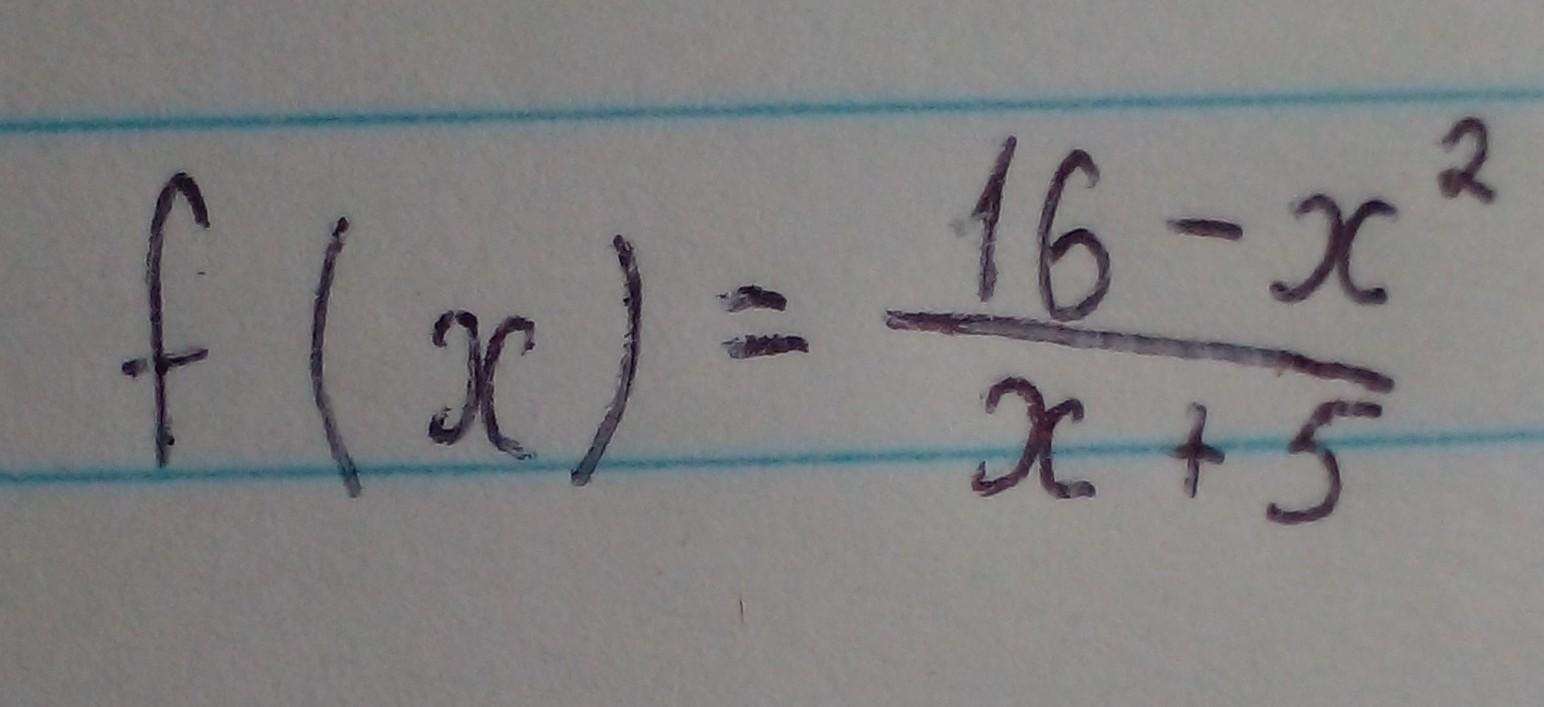 f(x) = \frac{16 - x^2}{x + 5}